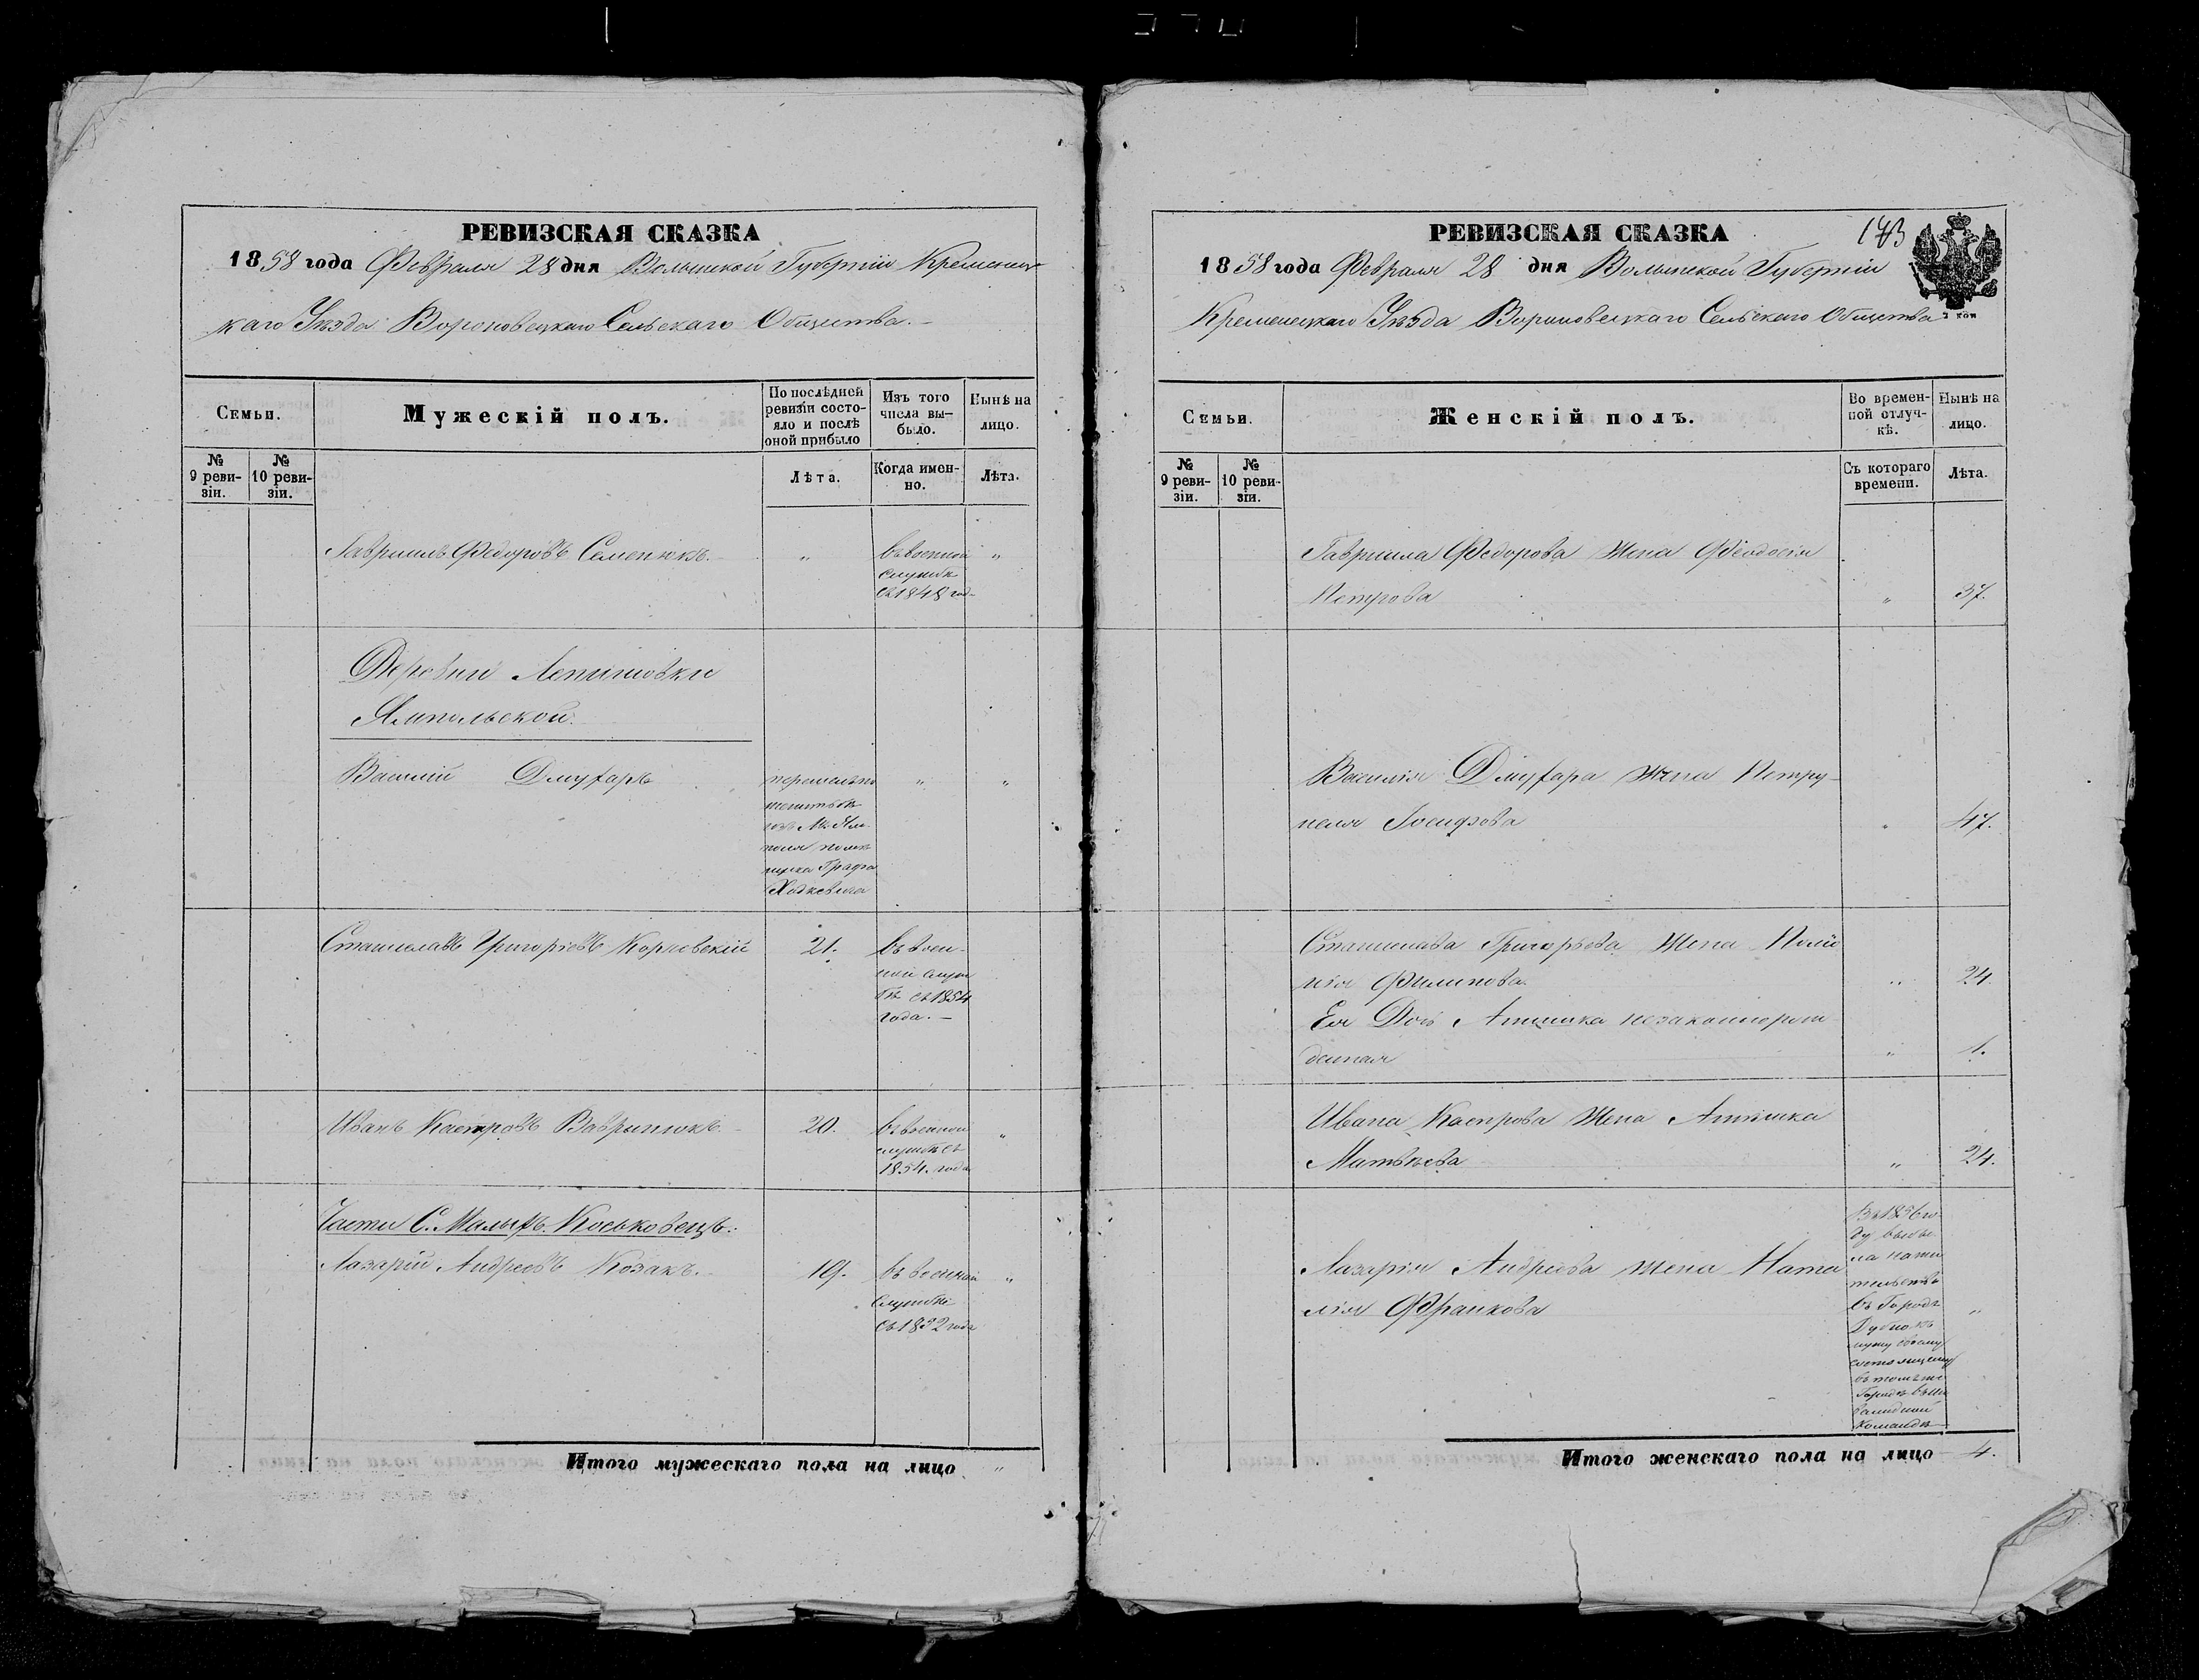 РЕВИЗСКАЯ СКАЗКА
1858 года Февраля 28 дня Волынской Губернiи Кременец
каго Уѣзда Вороновецкаго Сельскаго Общества.
Семьи.
Мужескiй полъ.
По послѣдней
ревизiи состо-
яло и послѣ
оной прибыло
Изъ того
числа вы-
было.
Нынѣ на
лицо.
№
9 реви-
зiи.
№
10 реви-
зiи.
Лѣта.
Когда имен-
но.
Лѣта.
Гаврiилъ Федоровъ Семенюкъ. „ „
въ военной
службѣ
съ 1848 год
Деревни Лепишовки
Ямпольской.
Василiй „ „
жительство
изъ М. Ям
поля помѣ
щика Графа
Ходкевича
Станиславъ Григорiевъ Корчевскiй 21.
въ воен-
ной служ
бѣ съ 1854
года.
Иванъ Каспровъ Вавринюкъ. 20. „
въ военной
службѣ съ
1854. года
Части С. Малыхъ Коськовецъ.
Лазарiй Андреевъ Козакъ. 19. въ военной „
службѣ
съ 1852 года
Итого мужескаго пола на лицо „
РЕВИЗСКАЯ СКАЗКА
1858 года Февраля 28 дня Волынской Губернiи
Кременецкаго Уѣзда Вороновецкаго Сельскаго Общества
Семьи.
Женскiй полъ.
Во времен-
ной отлуч-
кѣ.
Нынѣ на
лицо.
№
9 реви-
зiи.
№
10 реви-
зiи.
Съ котораго
времени.
Лѣта.
Гаврiила Федорова Жена Феодосiя
Петрова „ 37.
Василiя Жена Петру-
неля Iосифова „ 47.
Станислава Григорьева Жена
Филипова „ 24.
Ея Дочь Аннушка незаконнорож
денная „ 1.
Ивана Каспрова Жена Аннушка
Матвѣева „ 24.
Лазарiя Андреева жена Ната
лiя Франкова „
Въ 1856 го-
ду выбы-
ла на жи
тельство
въ Городъ
Дубно къ
мужу своему
состоящему
въ томъ же
Городѣ въ Ин
валидной
Командѣ
Итого женскаго пола на лицо 4.